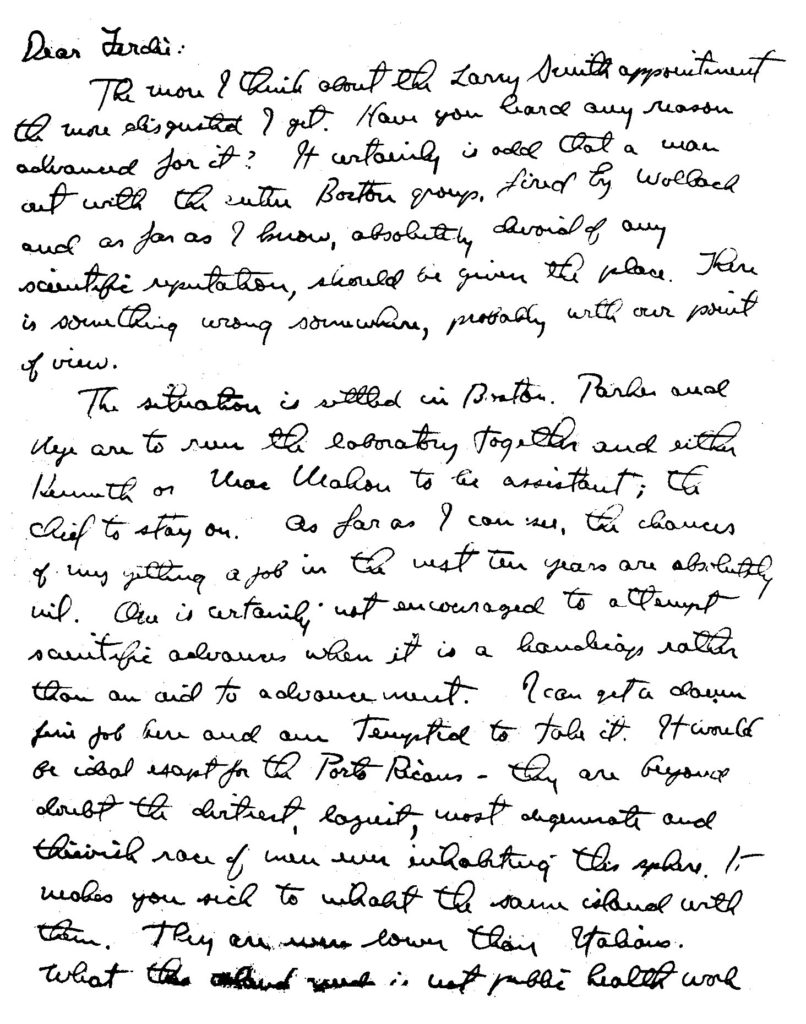 Dear Ferdie:
The more I think about the Larry Smith appointment
the more disgusted I get. Have you heard any reason
advanced for it? It certainly is odd that a man
out with the entire Boston group, fired by Wallach
and as far as I know, absolutely devoid of any
scientific reputation, should be given the place. There
is something wrong somewhere, probably with our point
of view.
The situation is settled in Boston. Parker and
Nye are to run the laboratory together and either
Kenneth or MacMahon to be assistant; the
chief to stay on. As far as I can see, the chances
of my getting a job in the next ten years are absolutely
nil. One is certainly not encouraged to attempt
scientific advances when it is a handicap rather
than an aid to advancement. I can get a damn
fine job here and am tempted to take it. It would
be ideal except for the Porto Ricans - they are beyond
doubt the dirtiest, laziest, most degenerate and
thievish race of men ever inhabiting this sphere. It
makes you sick to inhabit the same island with
them. They are even lower than Italians.
What the island needs is not public health work